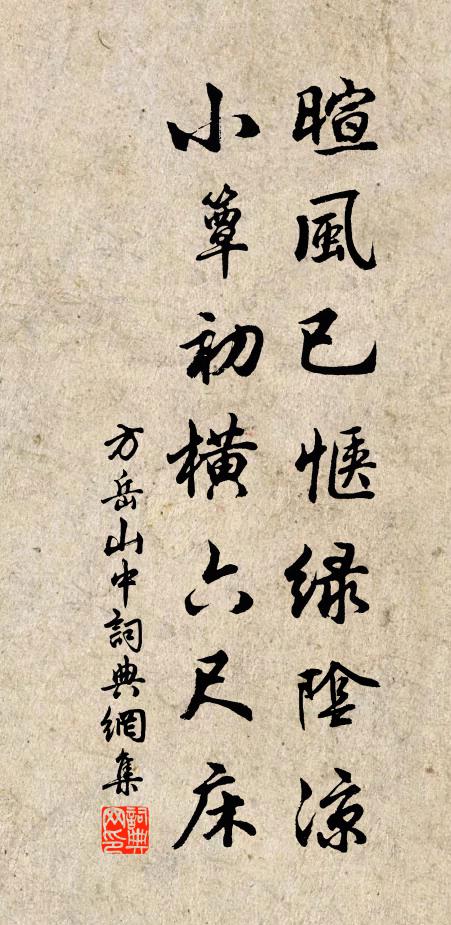 暄風已愜綠陰涼
小簟初橫六尺床
方岳山中詞典網集
詞典網印